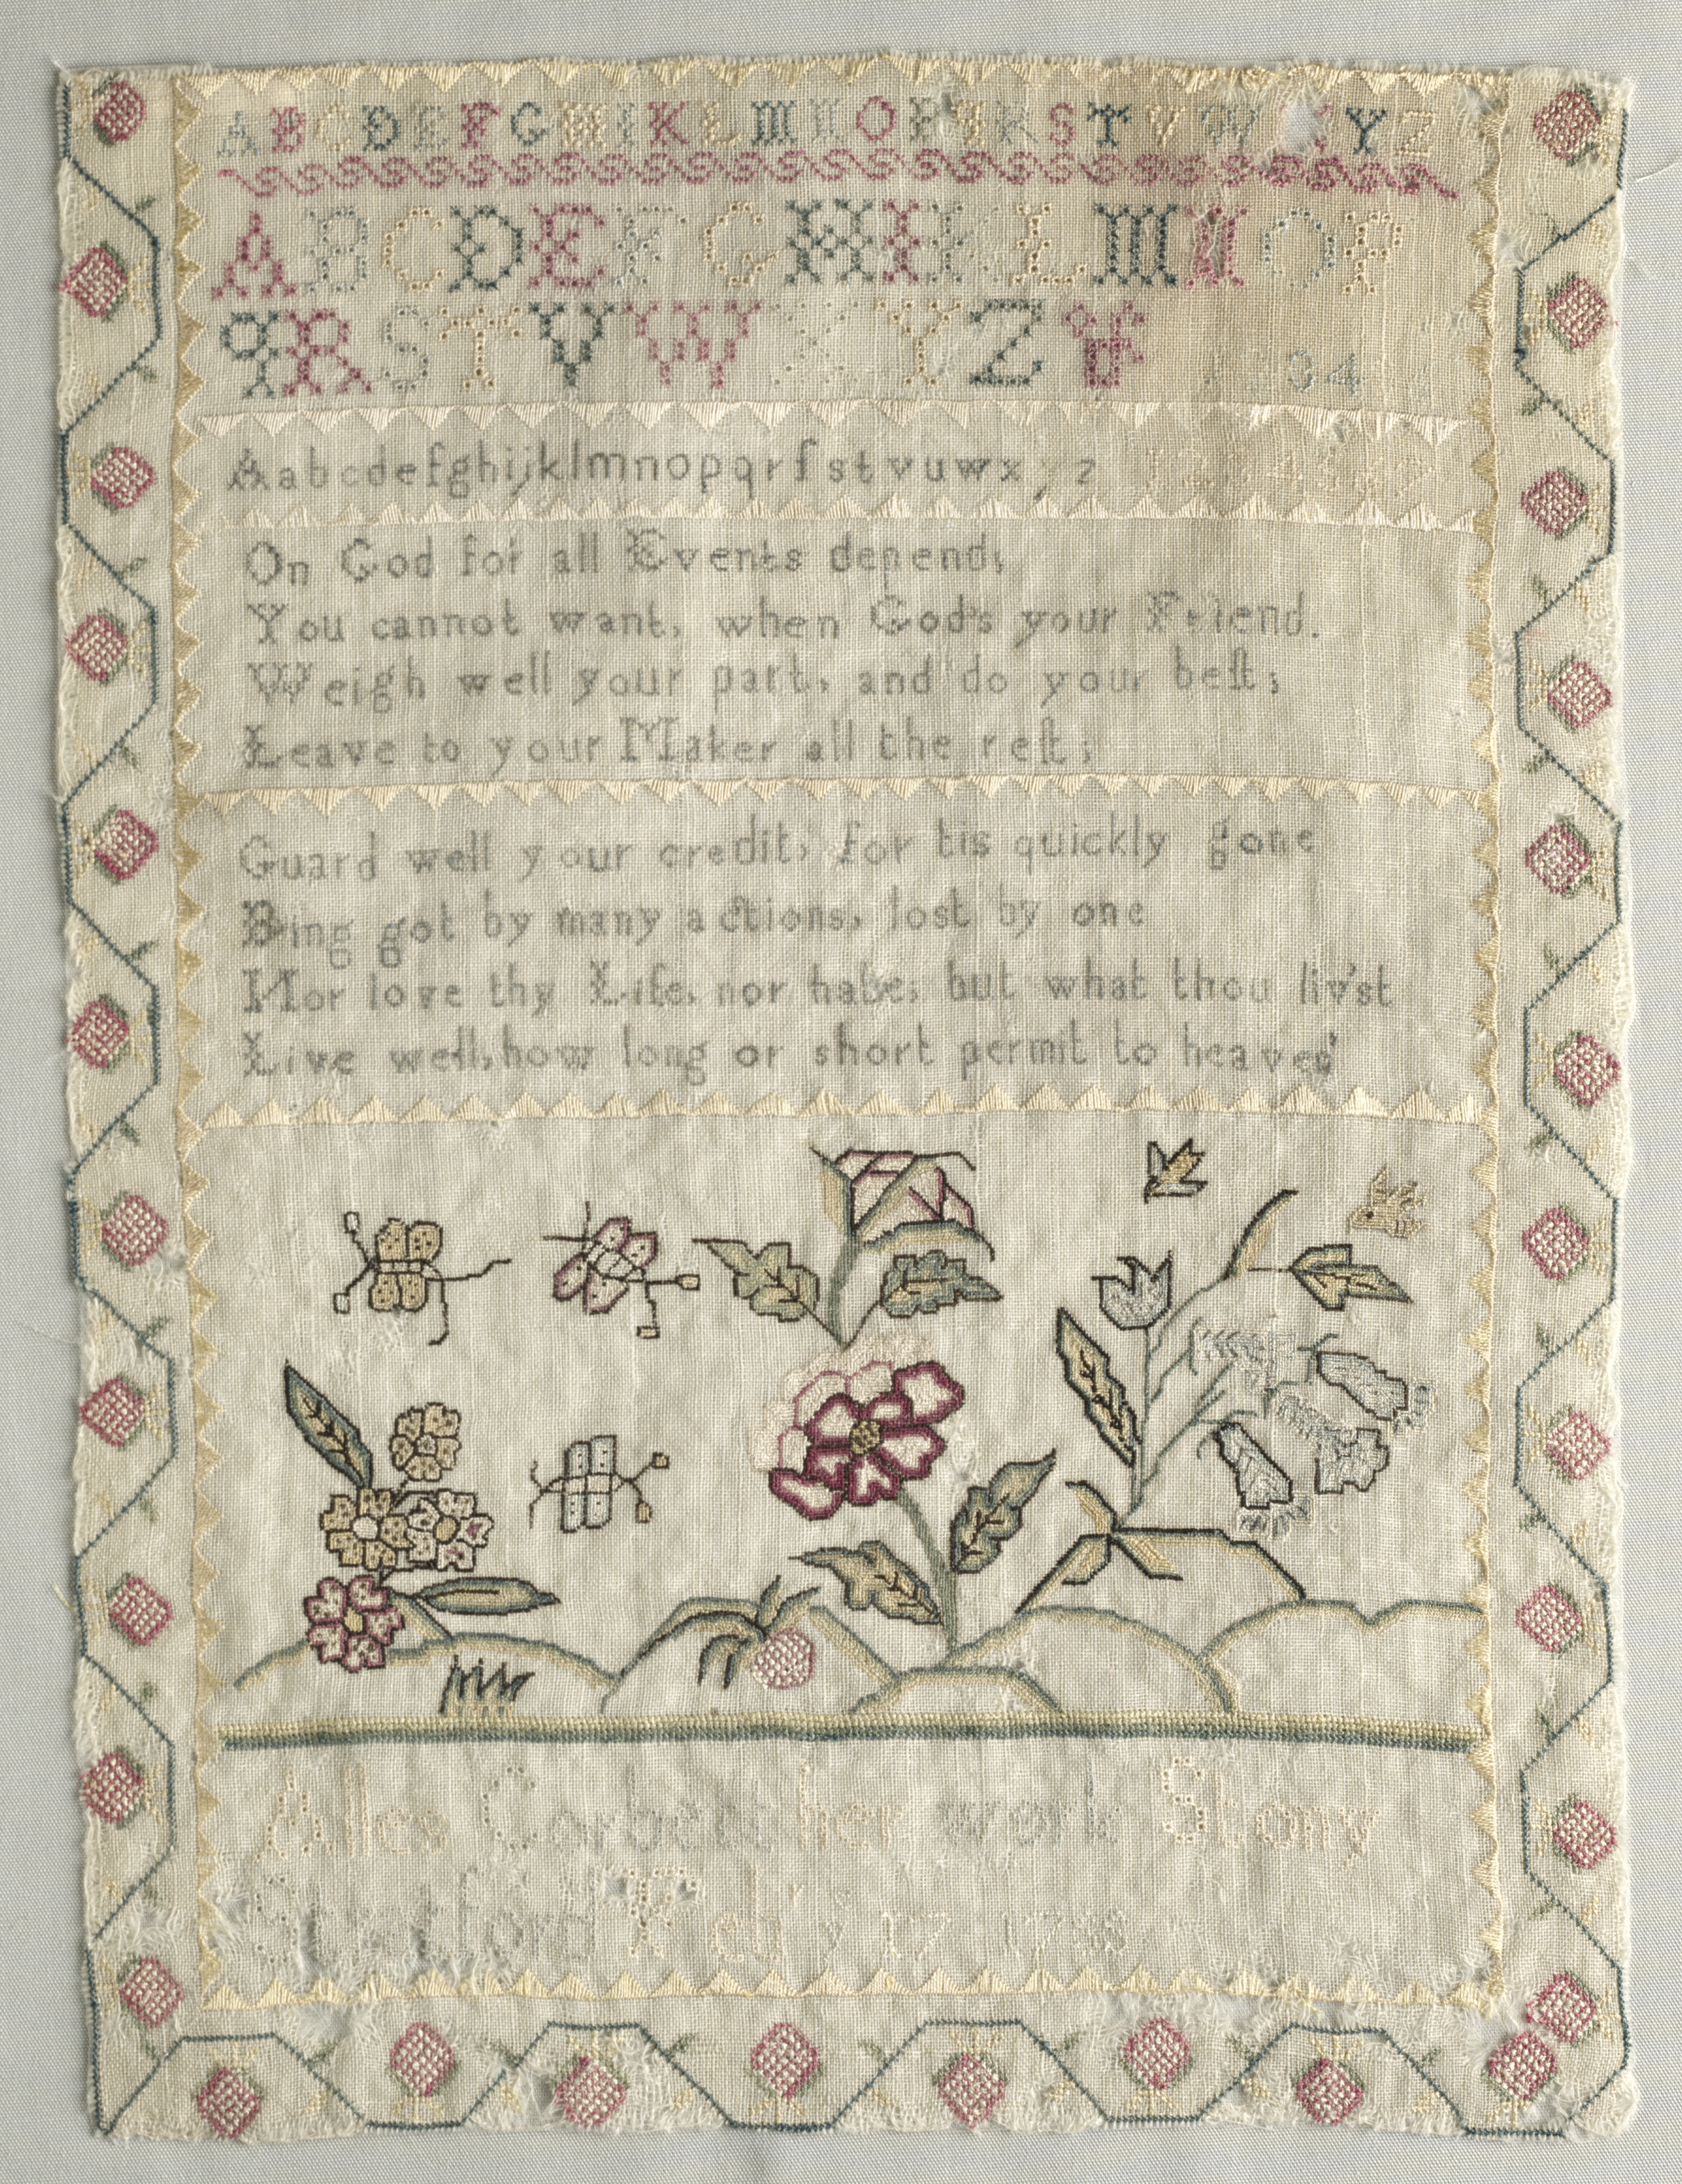 A B C D E F G H I K L M N O P Q R S T V W X Y Z
A B C D E F G H I K L M N O P
Q R S T V W X Y Z & 1 2 3 4
A a b c d e f g h i j k l m n o p q r ſ s t v u w x y z 1 2 3 4 5 6 7
On God for all Events depend;
You cannot want, when God's your Friend.
Weigh well your part, and do your beſt;
Leave to your Maker all the reſt;
Guard well your credit, for tis quickly gone
Bing got by many actions, lost by one
Nor love thy Life, nor hate; but what thou liv'st
Live well, how long or short permit to heaven'
Alles Corbett her work Stony
Stratford 17